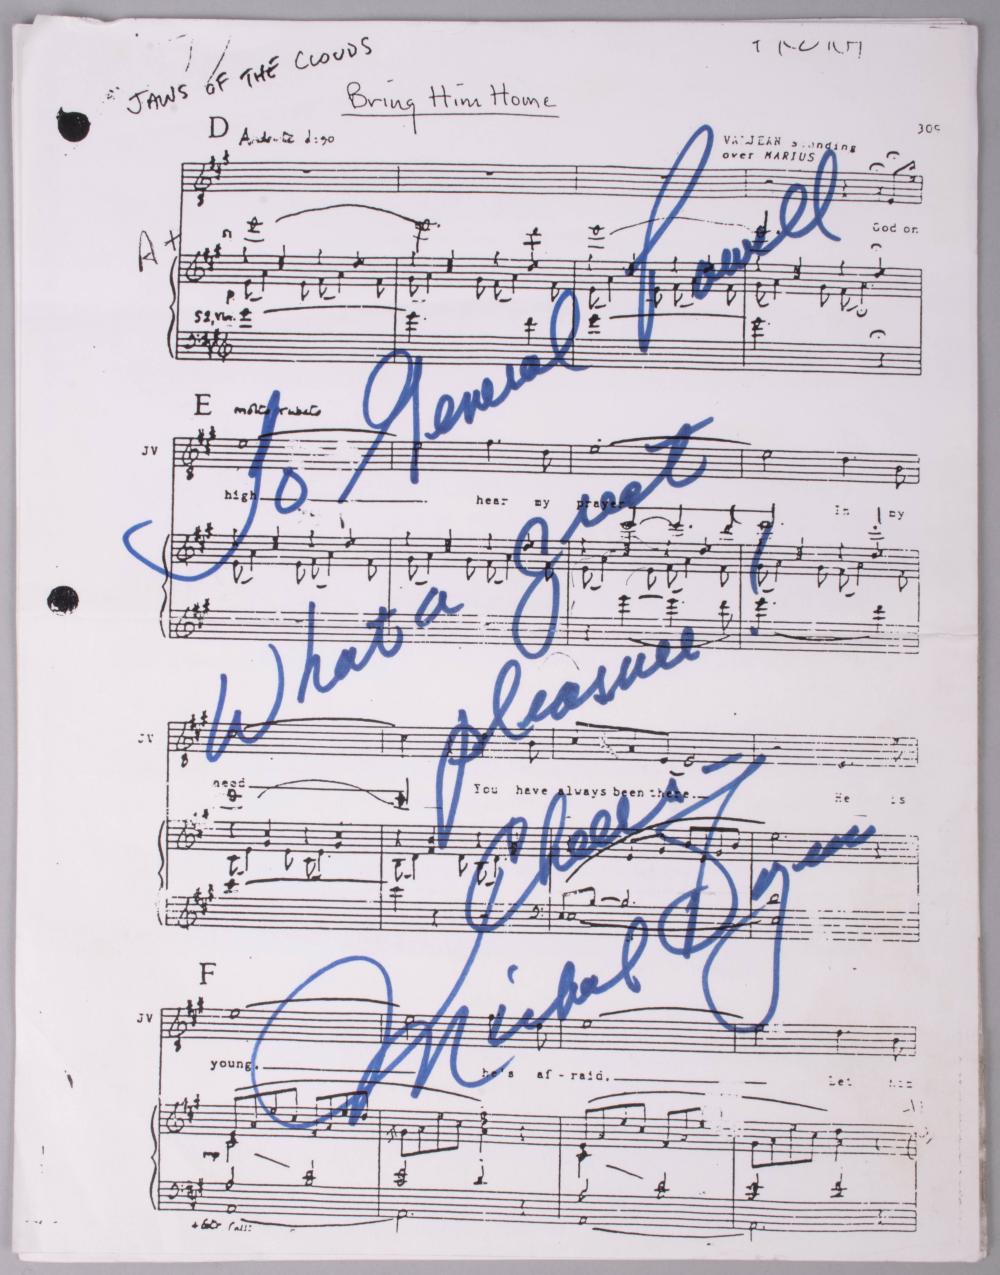 JAWS OF THE CLOUDS
Bring Him Home
309
D
VALJEAN standing
over MARIUS
God on
A+
p
To General Powell
E
molto rubato
JV
high hear my prayer In my
What a great
pleasure!
JV
need You have always been there. He is
Cheers,
Michael
F
JV
young, he's af-raid, Let him
mp